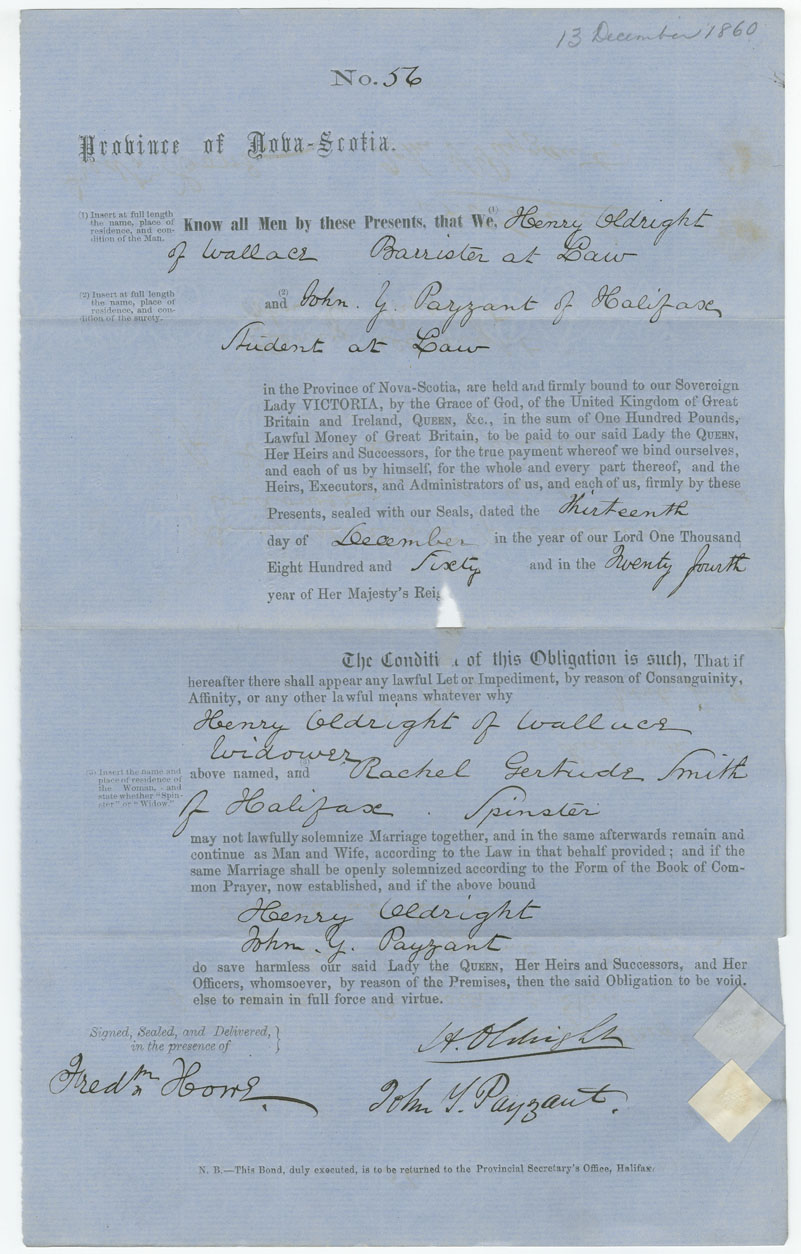 13 December 1860
No. 56
Province of Nova-Scotia.
(1) Insert at full length
the name, place of
residence, and con-
dition of the Man.
Know all Men by these Presents, that We, (1) Henry Oldright
of Wallace Barrister at Law
(2) Insert at full length
the name, place of
residence, and con-
dition of the surety.
and (2) John. Y. Payzant of Halifax
Student at Law
in the Province of Nova-Scotia, are held and firmly bound to our Sovereign
Lady VICTORIA, by the Grace of God, of the United Kingdom of Great
Britain and Ireland, QUEEN, &c., in the sum of One Hundred Pounds,
Lawful Money of Great Britain, to be paid to our said Lady the QUEEN,
Her Heirs and Successors, for the true payment whereof we bind ourselves,
and each of us by himself, for the whole and every part thereof, and the
Heirs, Executors, and Administrators of us, and each of us, firmly by these
Presents, sealed with our Seals, dated the Thirteenth
day of December in the year of our Lord One Thousand
Eight Hundred and Sixty and in the Twenty fourth
year of Her Majesty's Reig
The Conditi of this Obligation is such, That if
hereafter there shall appear any lawful Let or Impediment, by reason of Consanguinity,
Affinity, or any other lawful means whatever why
Henry Oldright of Wallace
Widower
(3) Insert the name and
place of residence of
the Woman, and
state whether "Spin-
ster" or "Widow."
above named, and (3) Rachel Gertude Smith
of Halifax . Spinster
may not lawfully solemnize Marriage together, and in the same afterwards remain and
continue as Man and Wife, according to the Law in that behalf provided; and if the
same Marriage shall be openly solemnized according to the Form of the Book of Com-
mon Prayer, now established, and if the above bound
Henry Oldright
John. Y. Payzant
do save harmless our said Lady the QUEEN, Her Heirs and Successors, and Her
Officers, whomsoever, by reason of the Premises, then the said Obligation to be void,
else to remain in full force and virtue.
Signed, Sealed, and Delivered,
in the presence of
H. Oldright
Fredm Howe.
John Y. Payzant.
N. B.—This Bond, duly executed, is to be returned to the Provincial Secretary's Office, Halifax.